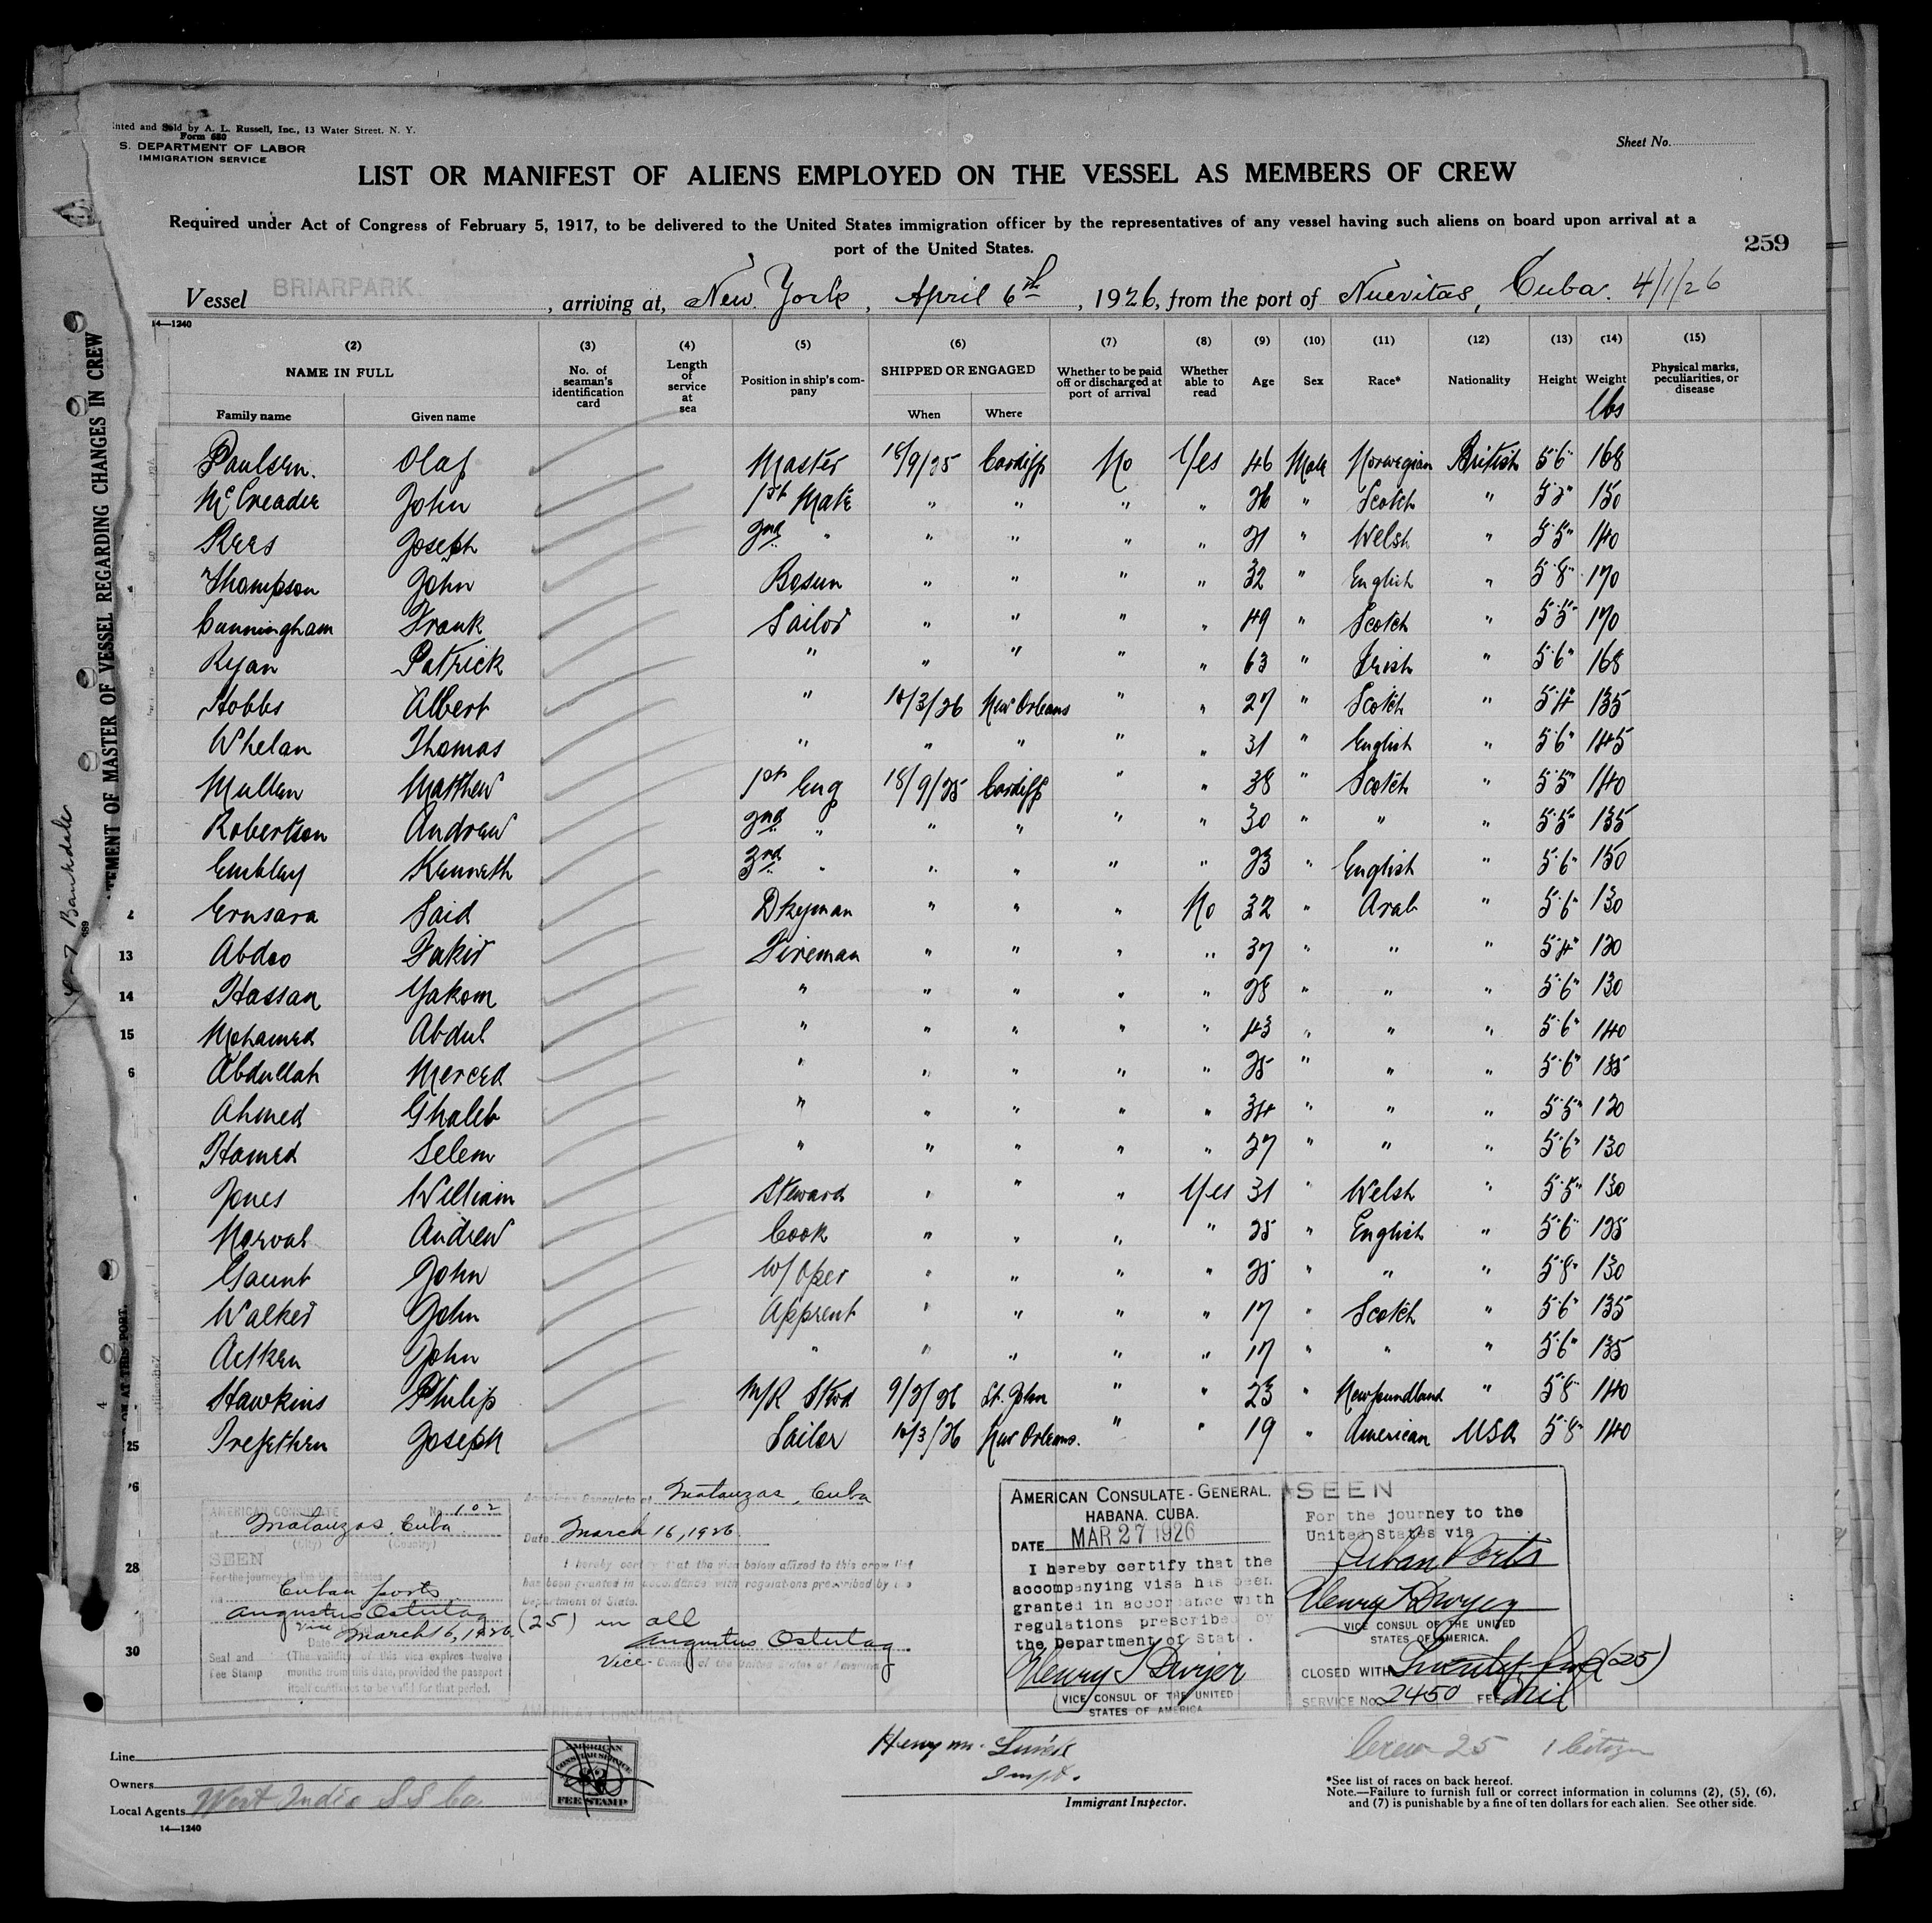 inted and Sold by A. L. Russell, Inc., 13 Water Street. N. Y.
Form 680
S. DEPARTMENT OF LABOR
IMMIGRATION SERVICE
Sheet No.
LIST OR MANIFEST OF ALIENS EMPLOYED ON THE VESSEL AS MEMBERS OF CREW
Required under Act of Congress of February 5, 1917, to be delivered to the United States immigration officer by the representatives of any vessel having such aliens on board upon arrival at a
port of the United States.
259
Vessel BRIARPARK, arriving at, New York, April 6th, 1926, from the port of Nuevitas, Cuba. 4/1/26
14—1240
(2) (3) (4) (5) (6) (7) (8) (9) (10) (11) (12) (13) (14) (15)
NAME IN FULL No. of seaman's identification card Length of service at sea Position in ship's company SHIPPED OR ENGAGED Whether to be paid off or discharged at port of arrival Whether able to read Age Sex Race* Nationality Height Weight Physical marks, peculiarities, or disease
Family name Given name When Where lbs
Paulsen. Olaf Master 18/9/25 Cardiff No Yes 46 Male Norwegian British 5·6" 168
McCreadie John 1st Mate " " " " 26 " Scotch " 5·5" 150
Rees Joseph 2nd " " " " " 21 " Welsh " 5·5" 140
Thompson John Bosun " " " " 32 " English " 5·8" 170
Cunningham Frank Sailor " " " " 49 " Scotch " 5·5" 170
Ryan Patrick " " " " " 63 " Irish " 5·6" 168
Hobbs Albert " 10/3/26 New Orleans " " 27 " Scotch " 5·4" 135
Whelan Thomas " " " " " 31 " English " 5·6" 145
Mullen Matthew 1st Eng 18/9/25 Cardiff " " 38 " Scotch " 5·5" 140
Robertson Andrew 2nd " " " " " 30 " " " 5·5" 135
Embley Kenneth 3rd " " " " " 23 " English " 5·6" 150
Ernsara Said Dkeyman " " " No 32 " Arab " 5·6" 130
13 Abdoo Fakir Fireman " " " " 37 " " " 5·4" 120
14 Hassan Yakom " " " " " 28 " " " 5·6" 130
15 Mohamed Abdul " " " " " 43 " " " 5·6" 140
6 Abdullah Merced " " " " " 25 " " " 5·6" 135
Ahmed Ghaleb " " " " " 34 " " " 5·5" 120
Hamed Selem " " " " " 27 " " " 5·6" 130
Jones William Steward " " " Yes 31 " Welsh " 5·5" 130
Norval Andrew Cook " " " " 25 " English " 5·6" 125
Gaunt John W/Oper " " " " 25 " " " 5·8" 130
Walker John Apprent " " " " 17 " Scotch " 5·6" 135
Aitken John " " " " " 17 " " " 5·6" 135
Hawkins Philip M/R Stwd 9/2/26 St. John " " 23 " Newfoundland " 5·8" 140
25 Trefethen Joseph Sailor 10/3/26 New Orleans. " " 19 " American USA 5·8" 140
26
28
30
AMERICAN CONSULATE No. 102
at Matanzas, Cuba
(City) (Country)
SEEN
For the journey to the United States
Cuban ports
Augustus Ostertag
Vice
Date March 16, 1926.
Seal and Fee Stamp
(The validity of this visa expires twelve
months from this date, provided the passport
itself continues to be valid for that period.
American Consulate at Matanzas, Cuba
Date March 16, 1926.
I hereby certify that the visa below affixed to this crew list
has been granted in accordance with regulations prescribed by the
Department of State.
(25) in all
Augustus Ostertag.
Vice-Consul of the United States of America
AMERICAN CONSULATE
AMERICAN CONSULATE-GENERAL.
HABANA. CUBA.
DATE MAR 27 1926
I hereby certify that the
accompanying visa has been
granted in accordance with
regulations prescribed by
the Department of State.
Henry T Dwyer
VICE CONSUL OF THE UNITED
STATES OF AMERICA
SEEN
For the journey to the
United States via
Cuban Ports
Henry T Dwyer
VICE CONSUL OF THE UNITED
STATES OF AMERICA.
CLOSED WITH Twenty five (25)
SERVICE No. 2450 FEE Nil
Line
Owners
Local Agents West India S S Co
14—1240
AMERICAN
CONSULAR SERVICE
$2
FEE STAMP
Henry M.
Inspt.
Immigrant Inspector.
Crew 25 1 Citizen
*See list of races on back hereof.
Note.—Failure to furnish full or correct information in columns (2), (5), (6),
and (7) is punishable by a fine of ten dollars for each alien. See other side.
TEMENT OF MASTER OF VESSEL REGARDING CHANGES IN CREW
Bankdale
ON AT THIS PORT